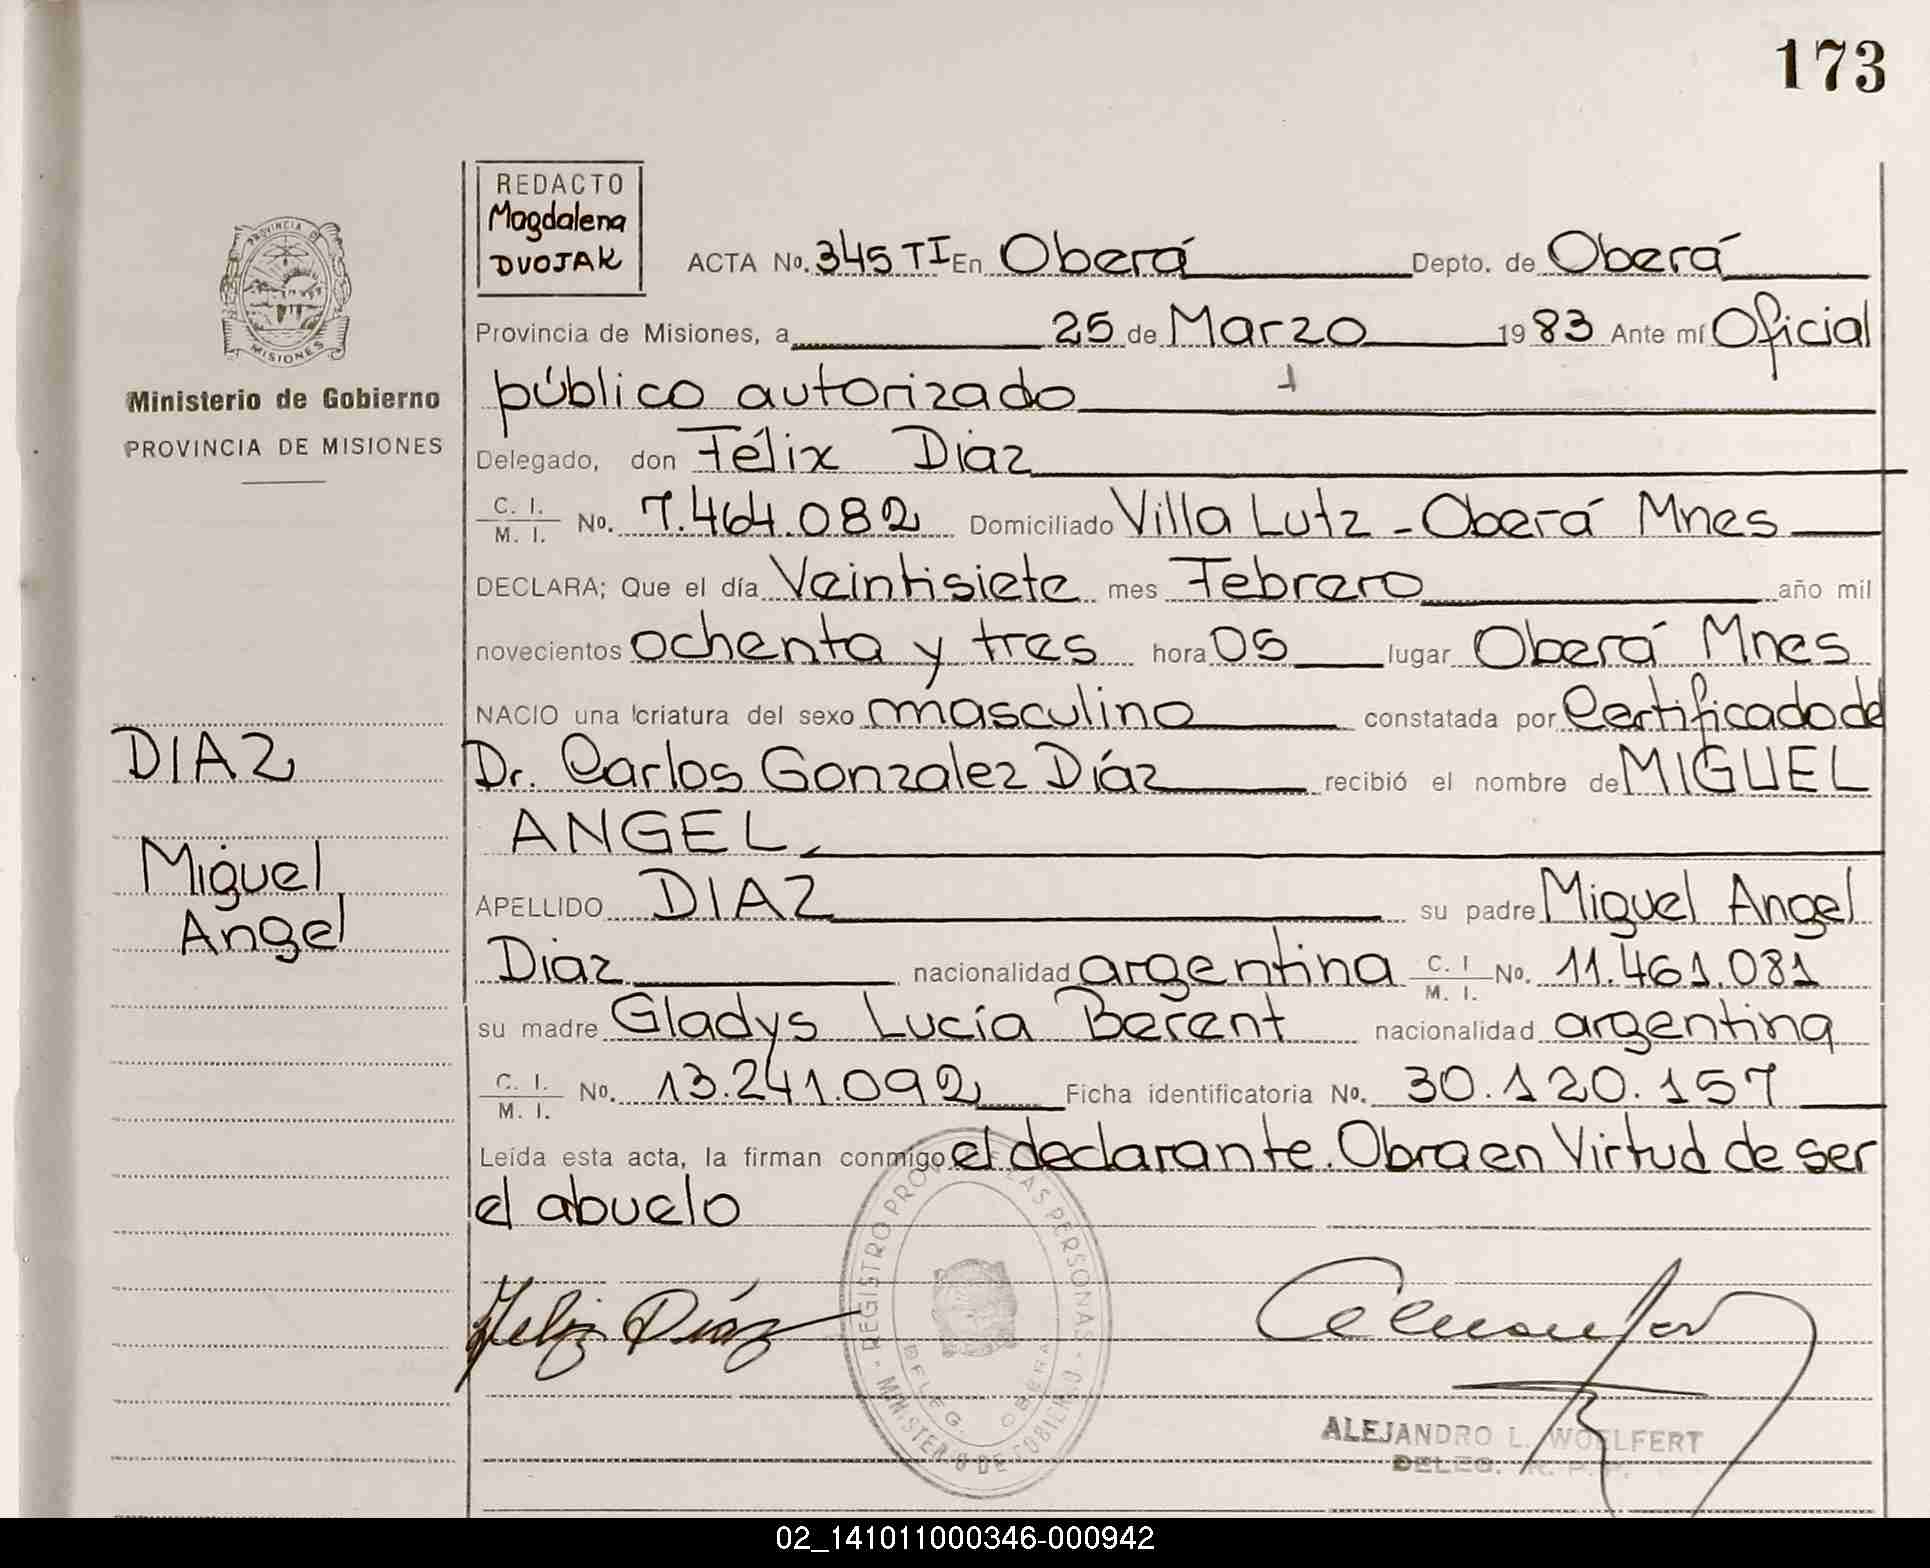 173
REDACTO
Magdalena
DVOJAK
ACTA No. 345 TI En Oberá Depto. de Oberá
Provincia de Misiones, a 25 de Marzo 1983 Ante mí Oficial
público autorizado
Delegado, don Félix Diaz
C. I. M. I. No. 7.464.082 Domiciliado Villa Lutz - Oberá Mnes
DECLARA; Que el día Veintisiete mes Febrero año mil
novecientos ochenta y tres hora 05 lugar Oberá Mnes
NACIO una criatura del sexo masculino constatada por Certificado del
Dr. Carlos Gonzalez Díaz recibió el nombre de MIGUEL
ANGEL,
APELLIDO DIAZ su padre Miguel Angel
Diaz nacionalidad argentina C. I M. I. No. 11.461.081
su madre Gladys Lucía Berent nacionalidad argentina
C. I. M. I. No. 13.241.092 Ficha identificatoria No. 30.120.157
Leída esta acta, la firman conmigo el declarante. Obra en Virtud de ser
el abuelo
PROVINCIA DE
MISIONES
Ministerio de Gobierno
PROVINCIA DE MISIONES
DIAZ
Miguel
Angel
Feliz Díaz
REGISTRO PROV. DE LAS PERSONAS
MINISTERIO DE GOBIERNO
DELEG. OBERA
ALEJANDRO L. WOELFERT
DELEG. R. P. P.
02_141011000346-000942